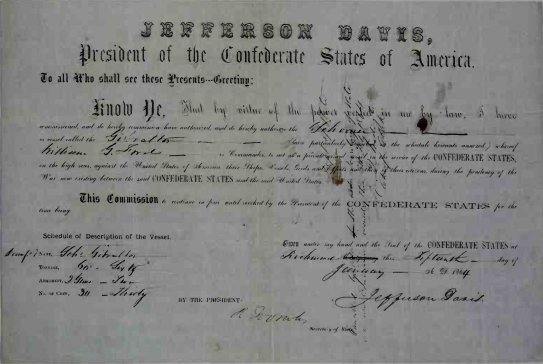 JEFFERSON DAVIS,
President of the Confederate States of America.
To all Who shall see these Presents---Greeting:
Know Ye, That by virtue of the power vested in me by law, I have
commissioned, and do hereby commission have authorized, and do hereby authorize the Schooner
a vessel called the Gibraltar (more particularly described in the schedule hereunto annexed,) whereof
William G. is Commander, to act as a private armed vessel in the service of the CONFEDERATE STATES,
on the high seas, against the United States of America, their Ships, Vessels, Goods and Effects, and those of their citizens, during the pendency of the
War now existing between the said CONFEDERATE STATES and the said United States.
This Commission to continue in force until revoked by the President of the CONFEDERATE STATES for the
time being.
Schedule of Description of the Vessel.
Name, Schr Gibraltar
Tonnage, 60 - Sixty
Armament, 2 Guns - Two
No. of Crew, 30 - Thirty
Given under my hand and the Seal of the CONFEDERATE STATES at
Richmond this Fifteenth day of
January A. D. 1864
Jefferson Davis
BY THE PRESIDENT
R. Toombs
Secretary of State